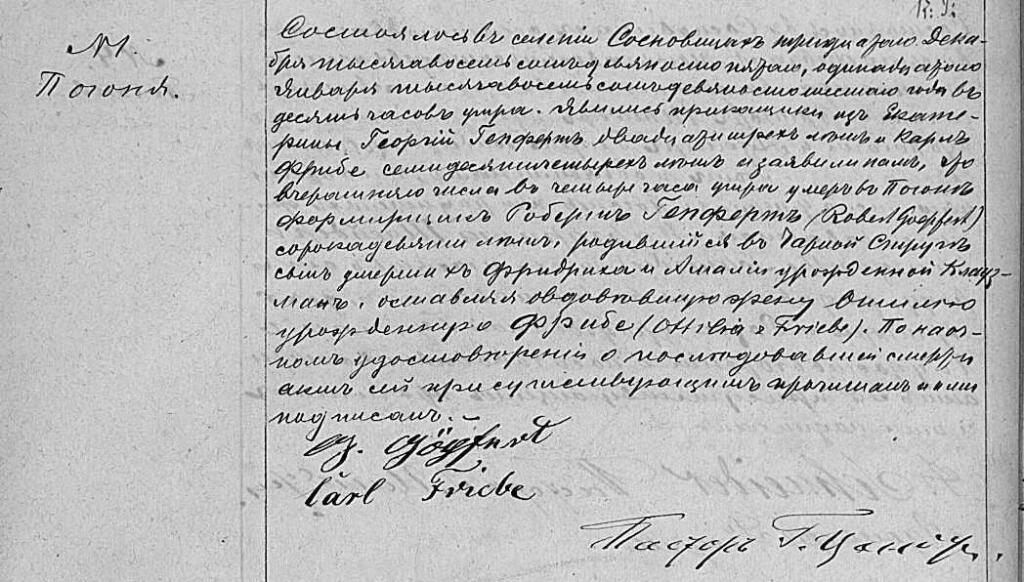 № 1.
Погоня.
Состоялось въ селеніи Сосновицахъ тридцатаго Дека-
бря тысяча восемь сотъ девяносто пятаго, одинадцатаго
Января тысяча восемь сотъ девяносто шестаго года въ
десять часовъ утра. Явились прикащики изъ Екате-
рины Георгій Гепфертъ двадцати трехъ лѣтъ и Карлъ
Фрибе семидесяти четырехъ лѣтъ и заявили намъ, что
вчерашняго числа въ четыре часа утра умеръ въ Погонѣ
формирщикъ Робертъ Гепфертъ (Robert Goepfert)
сорока девяти лѣтъ, родившійся въ Чарной Стругѣ
сынъ умершихъ Фридриха и Амаліи урожденной Клауз-
манъ, оставляя овдовѣвшую жену Оттилію
урожденную Фрибе (Ottilia z Friebe). По наоч-
номъ удостовѣреніи о послѣдовавшей смерти
актъ сей присутствующимъ прочитанъ и ими
подписанъ. –
G. Göpfert
Carl Friebe
Пасторъ Г.